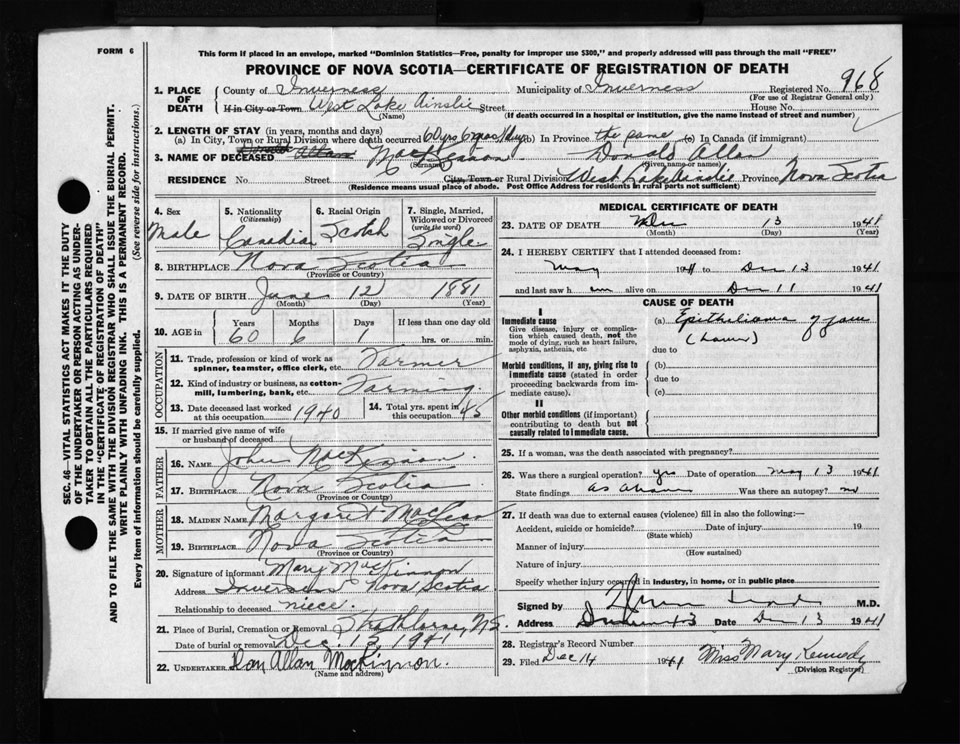 FORM 6
This form if placed in an envelope, marked "Dominion Statistics—Free, penalty for improper use $300," and properly addressed will pass through the mail "FREE"
PROVINCE OF NOVA SCOTIA—CERTIFICATE OF REGISTRATION OF DEATH
1. PLACE OF DEATH
County of Inverness Municipality of Inverness Registered No. 968
(For use of Registrar General only)
If in City or Town West Lake Ainslie Street House No.
(Name) (If death occurred in a hospital or institution, give the name instead of street and number)
2. LENGTH OF STAY (in years, months and days)
(a) In City, Town or Rural Division where death occurred 60 yrs 6 mos 1 day (b) In Province the same (c) In Canada (if immigrant)
3. NAME OF DECEASED MacKinnon Donald Allan
(Surname) (Given name or names)
RESIDENCE No. Street City, Town or Rural Division West Lake Ainslie Province Nova Scotia
(Residence means usual place of abode. Post Office Address for residents in rural parts not sufficient)
4. Sex Male
5. Nationality (Citizenship) Canadian
6. Racial Origin Scotch
7. Single, Married, Widowed or Divorced (write the word) Single
8. BIRTHPLACE Nova Scotia
(Province or Country)
9. DATE OF BIRTH June 12 1881
(Month) (Day) (Year)
10. AGE in Years Months Days If less than one day old
60 6 1 hrs. or min.
OCCUPATION
11. Trade, profession or kind of work as spinner, teamster, office clerk, etc. Farmer
12. Kind of industry or business, as cotton-mill, lumbering, bank, etc. Farming.
13. Date deceased last worked at this occupation 1940
14. Total yrs. spent in this occupation 45
15. If married give name of wife or husband of deceased
FATHER
16. NAME John MacKinnon
17. BIRTHPLACE Nova Scotia
(Province or Country)
MOTHER
18. MAIDEN NAME Margaret MacLean
19. BIRTHPLACE Nova Scotia
(Province or Country)
20. Signature of informant Mary MacKinnon
Address Inverness Nova Scotia
Relationship to deceased niece.
21. Place of Burial, Cremation or Removal Strathlorne, N.S.
Date of burial or removal Dec. 15 1941
22. UNDERTAKER Ron Allan MacKinnon.
(Name and address)
MEDICAL CERTIFICATE OF DEATH
23. DATE OF DEATH 13 1941
(Month) (Day) (Year)
24. I HEREBY CERTIFY that I attended deceased from:
May 1941 to Dec 13 1941
and last saw h im alive on Dec 11 1941
CAUSE OF DEATH
I
Immediate cause
Give disease, injury or complication which caused death, not the mode of dying, such as heart failure, asphyxia, asthenia, etc
(a) Epithelioma of jaw
due to
Morbid conditions, if any, giving rise to immediate cause (stated in order proceeding backwards from immediate cause).
(b)
due to
(c)
II
Other morbid conditions (if important) contributing to death but not causally related to immediate cause.
25. If a woman, was the death associated with pregnancy?
26. Was there a surgical operation? yes Date of operation May 13 1941
State findings as above Was there an autopsy? no
27. If death was due to external causes (violence) fill in also the following:—
Accident, suicide or homicide? Date of injury 19
(State which)
Manner of injury
(How sustained)
Nature of injury
Specify whether injury occurred in industry, in home, or in public place
Signed by M.D.
Address Date Dec 13 1941
28. Registrar's Record Number
29. Filed Dec 14 1941 Miss Mary Kennedy
(Division Registrar)
SEC. 46—VITAL STATISTICS ACT MAKES IT THE DUTY OF THE UNDERTAKER OR PERSON ACTING AS UNDERTAKER TO OBTAIN ALL THE PARTICULARS REQUIRED IN THE "CERTIFICATE OF REGISTRATION OF DEATH"
AND TO FILE THE SAME WITH THE DIVISION REGISTRAR WHO SHALL ISSUE THE BURIAL PERMIT.
WRITE PLAINLY WITH UNFADING INK. THIS IS A PERMANENT RECORD.
Every item of information should be carefully supplied. (See reverse side for instructions.)